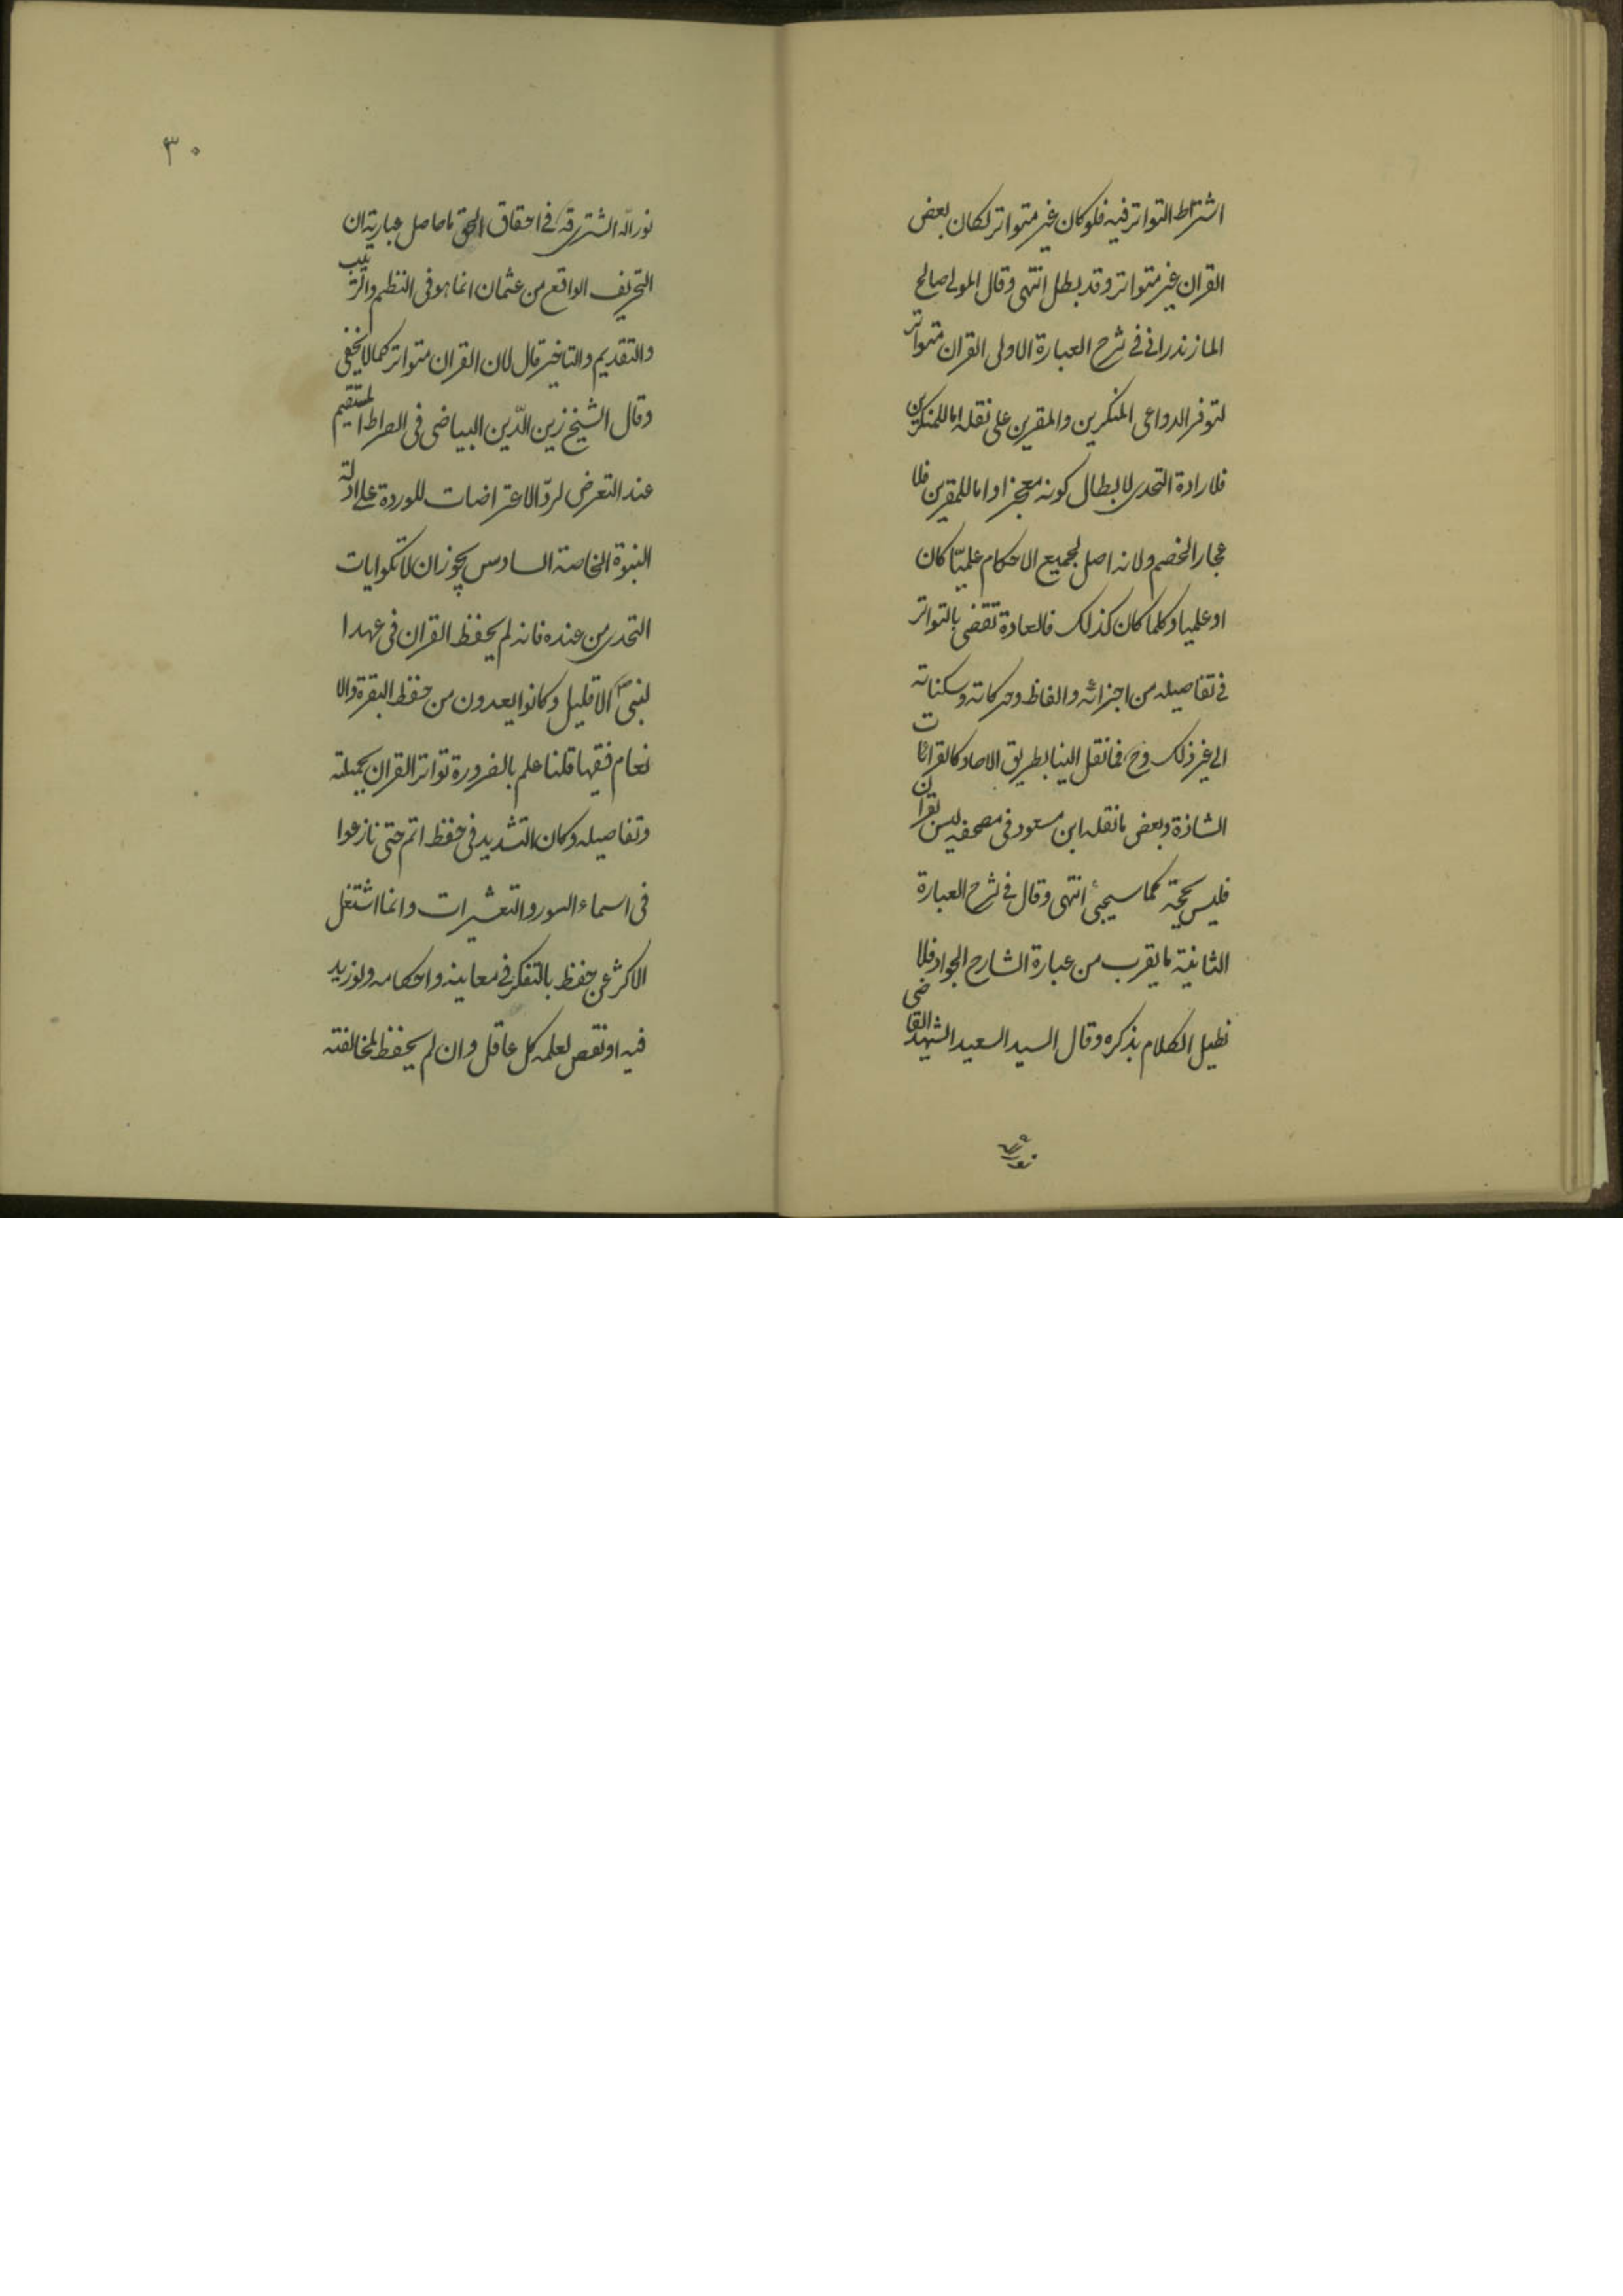 اشتراط التواتر فيه فلو كان غير متواتر لكان بعض
القران غير متواتر وقد بطل انتهى وقال المولى صالح
المازندراني في شرح العبارة الاولى القران متواتر
لتوفر الدواعي المنكرين والمقرين على نقله اما للمنكرين
فلارادة التحدي لابطال كونه معجزا واما للمقرين فلا
عجاز الخصم ولانه اصل لجميع الاحكام علميّا كان
او عمليا وكلما كان كذلك فالعادة تقضي بالتواتر
في تفاصيله من اجزائه والفاظه وحركاته وسكناته
الى غير ذلك وح فما نقل الينا بطريق الاحاد كالقرائات
الشاذة وبعض ما نقله ابن مسعود في مصحفه ليس بقران
فليس بحجة كما سيجيئ انتهى وقال في شرح العبارة
الثانية ما يقرب من عبارة الشارح الجواد فلا
نطيل الكلام بذكره وقال السيد السعيد الشهيد القاضي
نور الله
٣٠
نور الله الشتري قده في احقاق الحق ما حاصل عبارته ان
التحريف الواقع من عثمان انما هو في النظم والترتيب
والتقديم والتاخير قال لان القران متواتر كما لا يخفى
وقال الشيخ زين الدّين البياضي في الصراط المستقيم
عند التعرض لردّ الاعتراضات للوردة على ادلة
النبوة الخاصة السادس يجوز ان لا تكو ايات
التحدي من عنده فانه لم يحفظ القران في عهد ا
لنبيّ الا قليل وكانوا يعدون من حفظ البقرة والا
نعام فقيها قلنا علم بالضرورة تواتر القران بجملته
وتفاصيله وكان التشديد في حفظه اتم حتى نازعوا
في اسماء السور والتعشيرات وانما اشتغل
الاكثر عن حفظه بالتفكر في معاينه واحكامه ولو زيد
فيه او نقص لعلمه كل عاقل وان لم يحفظه لمخالفته